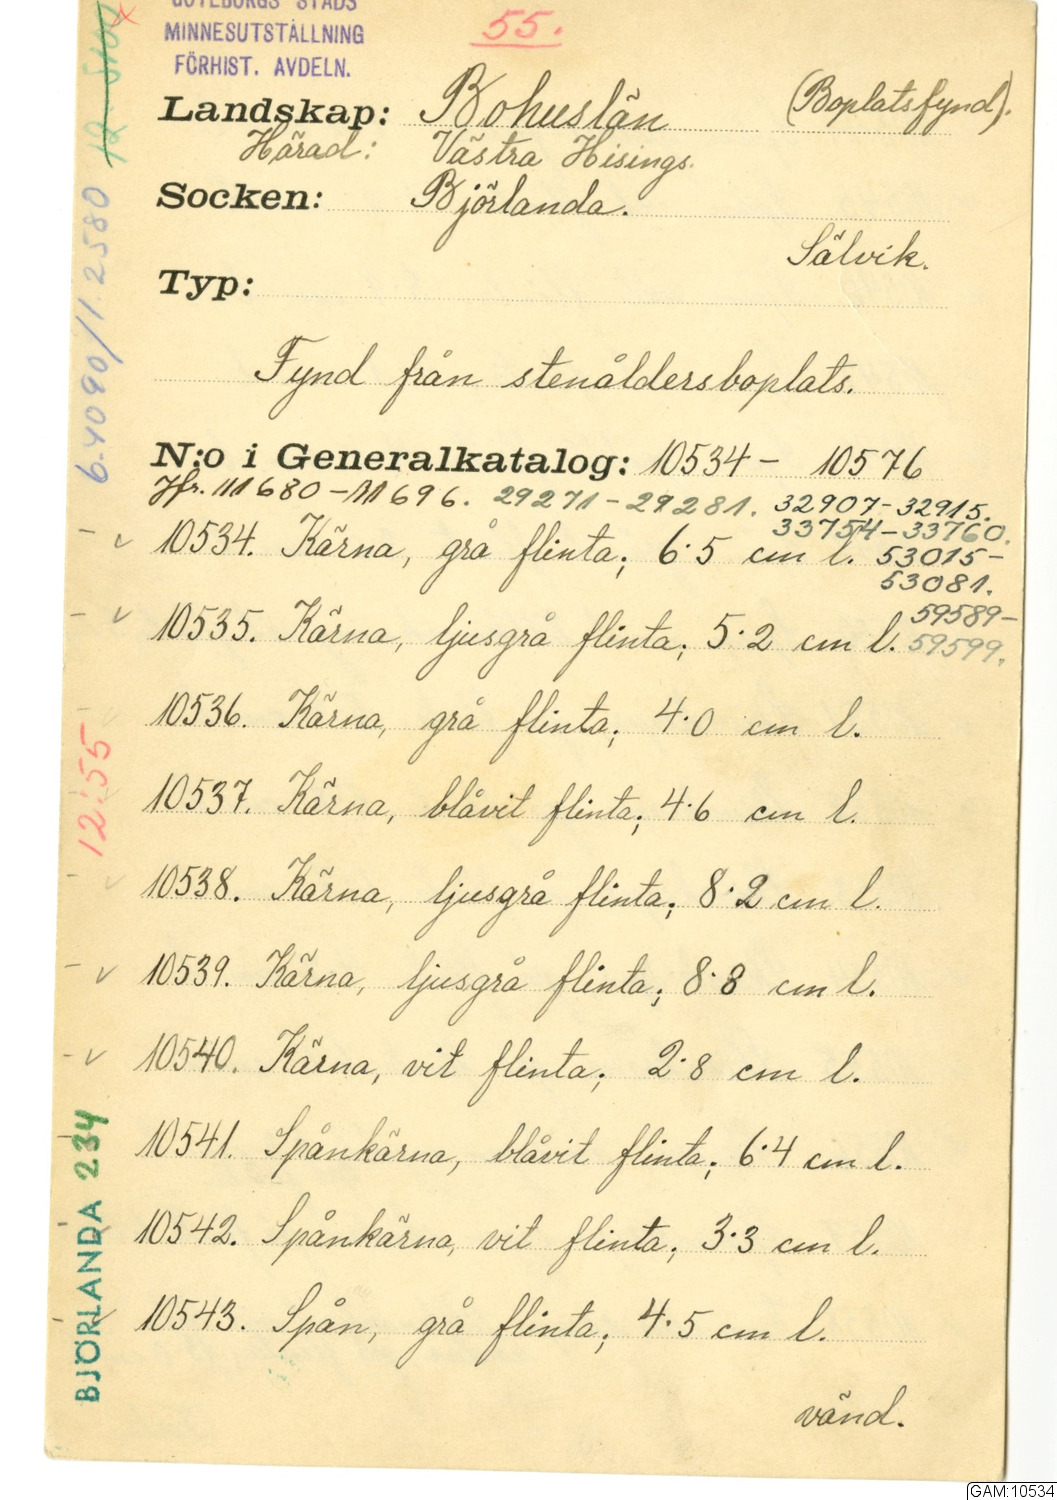 GÖTEBORGS STADS
MINNESUTSTÄLLNING
FÖRHIST. AVDELN.
55.
Landskap: Bohuslän (Boplatsfynd).
Härad: Västra Hisings.
Socken: Björlanda.
Sälvik.
Typ:
Fynd från stenåldersboplats.
N:o i Generalkatalog: 10534 - 10576
Jfr. 11680-11696. 29271-29281. 32907-32915.
33754-33760.
10534. Kärna, grå flinta; 6·5 cm l. 53015-
53081.
59589-
10535. Kärna, ljusgrå flinta; 5·2 cm l. 59599.
10536. Kärna, grå flinta; 4·0 cm l.
10537. Kärna, blåvit flinta; 4·6 cm l.
10538. Kärna, ljusgrå flinta; 8·2 cm l.
10539. Kärna, ljusgrå flinta; 8·8 cm l.
10540. Kärna, vit flinta; 2·8 cm l.
10541. Spånkärna, blåvit flinta; 6·4 cm l.
10542. Spånkärna, vit flinta; 3·3 cm l.
10543. Spån, grå flinta; 4·5 cm l.
vänd.
6.4090/1.2580
12:55
BJÖRLANDA 234
GAM:10534